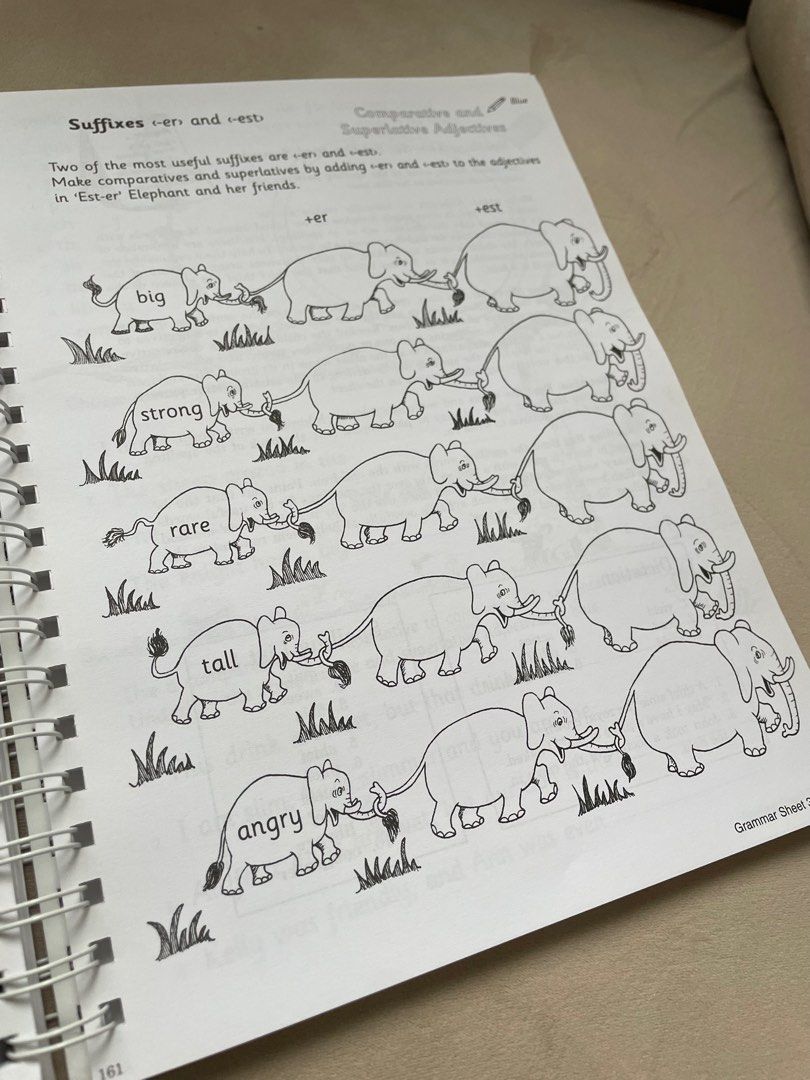 Suffixes ‹-er› and ‹-est›
Comparative and
Superlative Adjectives
Blue
Two of the most useful suffixes are ‹-er› and ‹-est›.
Make comparatives and superlatives by adding ‹-er› and ‹-est› to the adjectives
in ‘Est-er’ Elephant and her friends.
+er
+est
big
strong
rare
tall
angry
Grammar Sheet 3
161